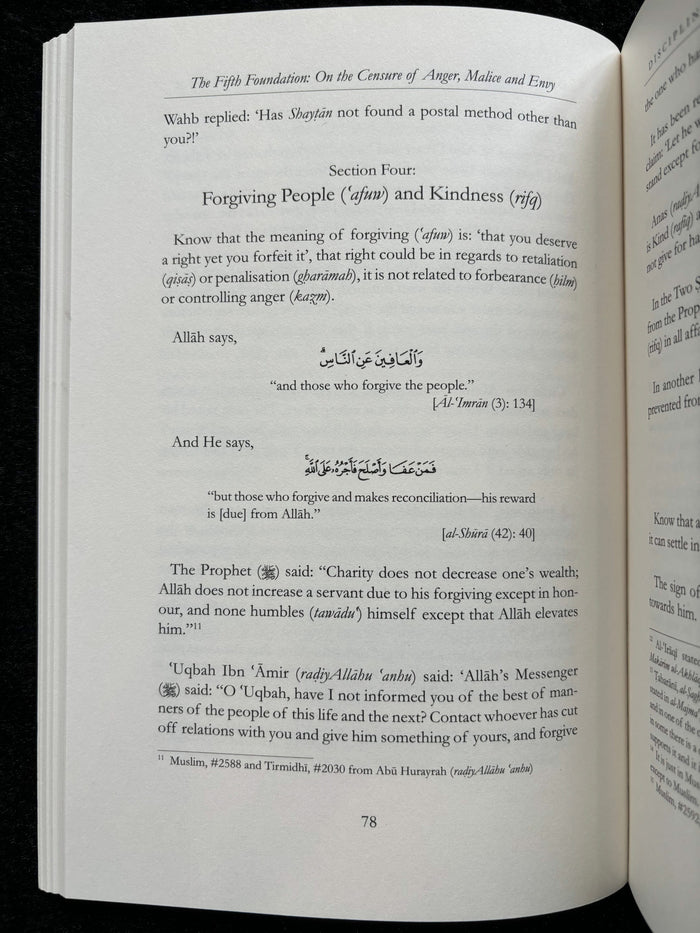 The Fifth Foundation: On the Censure of Anger, Malice and Envy
Wahb replied: ‘Has Shayṭān not found a postal method other than
you?!’
Section Four:
Forgiving People (ʿafuw) and Kindness (rifq)
Know that the meaning of forgiving (ʿafuw) is: ‘that you deserve
a right yet you forfeit it’, that right could be in regards to retaliation
(qiṣāṣ) or penalisation (gharāmah), it is not related to forbearance (ḥilm)
or controlling anger (kaẓm).
Allāh says,
وَٱلْعَافِينَ عَنِ ٱلنَّاسِ ۗ
“and those who forgive the people.”
[Āl-ʿImrān (3): 134]
And He says,
فَمَنْ عَفَا وَأَصْلَحَ فَأَجْرُهُۥ عَلَى ٱللَّهِ ۚ
“but those who forgive and makes reconciliation—his reward
is [due] from Allāh.”
[al-Shūrā (42): 40]
The Prophet (ﷺ) said: “Charity does not decrease one’s wealth;
Allāh does not increase a servant due to his forgiving except in hon-
our, and none humbles (tawāḍuʿ) himself except that Allāh elevates
him.”11
ʿUqbah Ibn ʿĀmir (raḍiyAllāhu ʿanhu) said: ‘Allāh’s Messenger
(ﷺ) said: “O ʿUqbah, have I not informed you of the best of man-
ners of the people of this life and the next? Contact whoever has cut
off relations with you and give him something of yours, and forgive
11 Muslim, #2588 and Tirmidhī, #2030 from Abū Hurayrah (raḍiyAllāhu ʿanhu)
78
DISCIPLIN
the one who ha
It has been r
claim: ‘Let he w
stand except fo
Anas (raḍiy
is Kind (rafīq)
not give for ha
In the Two Ṣ
from the Prop
(rifq) in all affa
In another
prevented from
Know that a
it can settle in
The sign of
towards him.
12 Al-ʿIrāqī stated
Makārim al-Akhlāq
13 Ṭabarānī, al-Ṣagh
stated in al-Majmaʿ
and in one of the c
in some there is a
supports it and it
14 It is just in Mus
except to Muslim.
15 Muslim, #2592